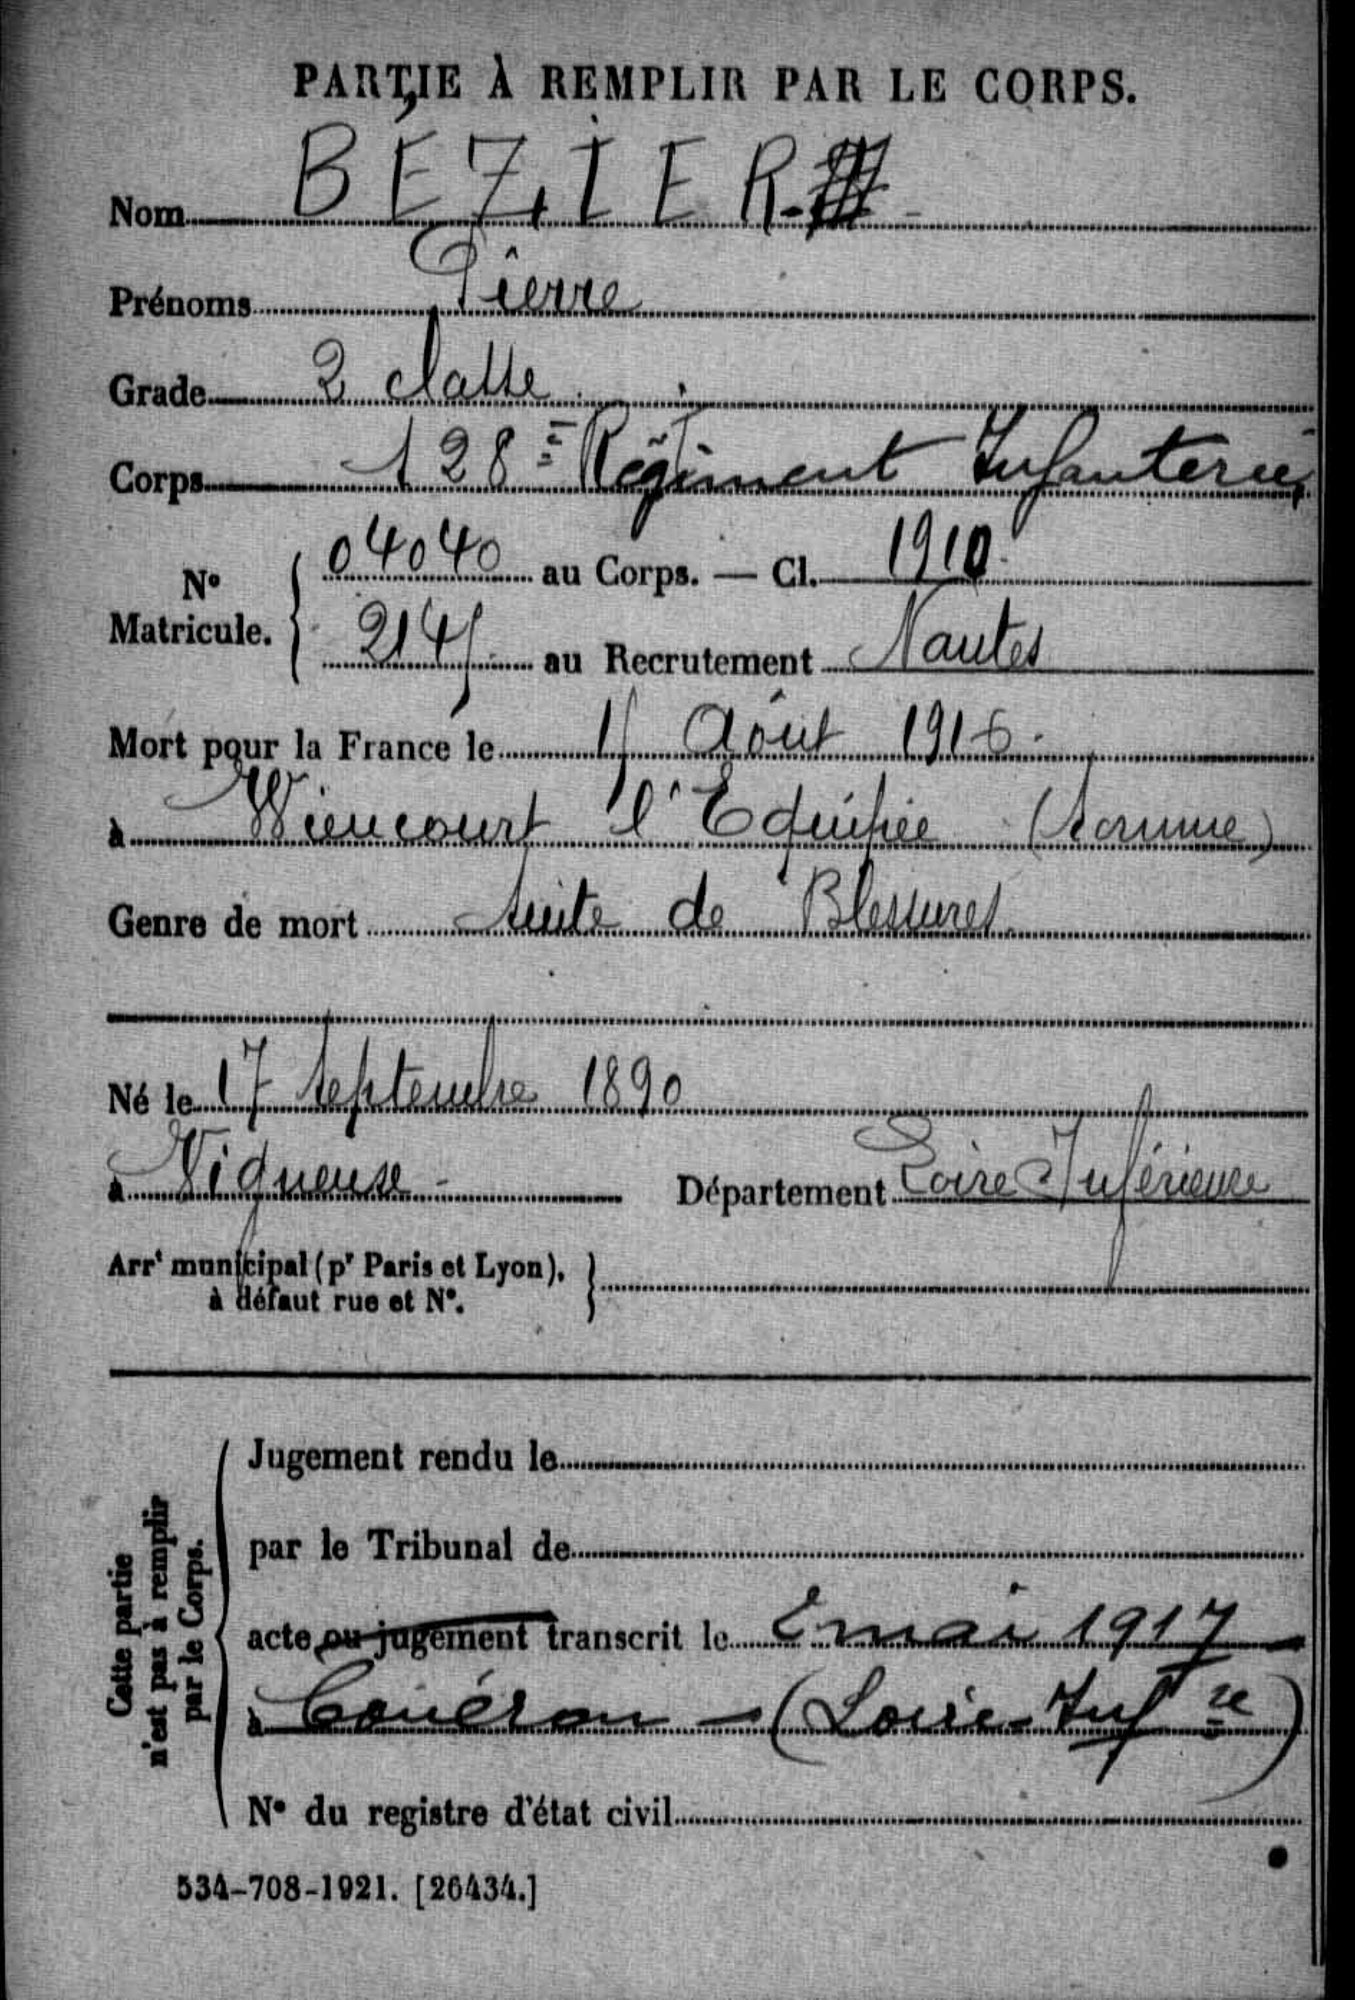 PARTIE À REMPLIR PAR LE CORPS.
Nom BÉZIER
Prénoms Pierre
Grade 2 classe
Corps 128e Régiment Infanterie
N° Matricule. 04040 au Corps. — Cl. 1910
2145 au Recrutement Nantes
Mort pour la France le Août 1916
à Wiencourt l'Equipée (Somme)
Genre de mort suite de Blessures
Né le 17 Septembre 1890
à Vigneuse Département Loire Inférieure
Arrt municipal (pr Paris et Lyon),
à défaut rue et N°.
Cette partie
n'est pas à remplir
par le Corps.
Jugement rendu le
par le Tribunal de
acte ou jugement transcrit le mai 1917
à Couéron - (Loire-Infre)
N° du registre d'état civil
534-708-1921. [26434.]